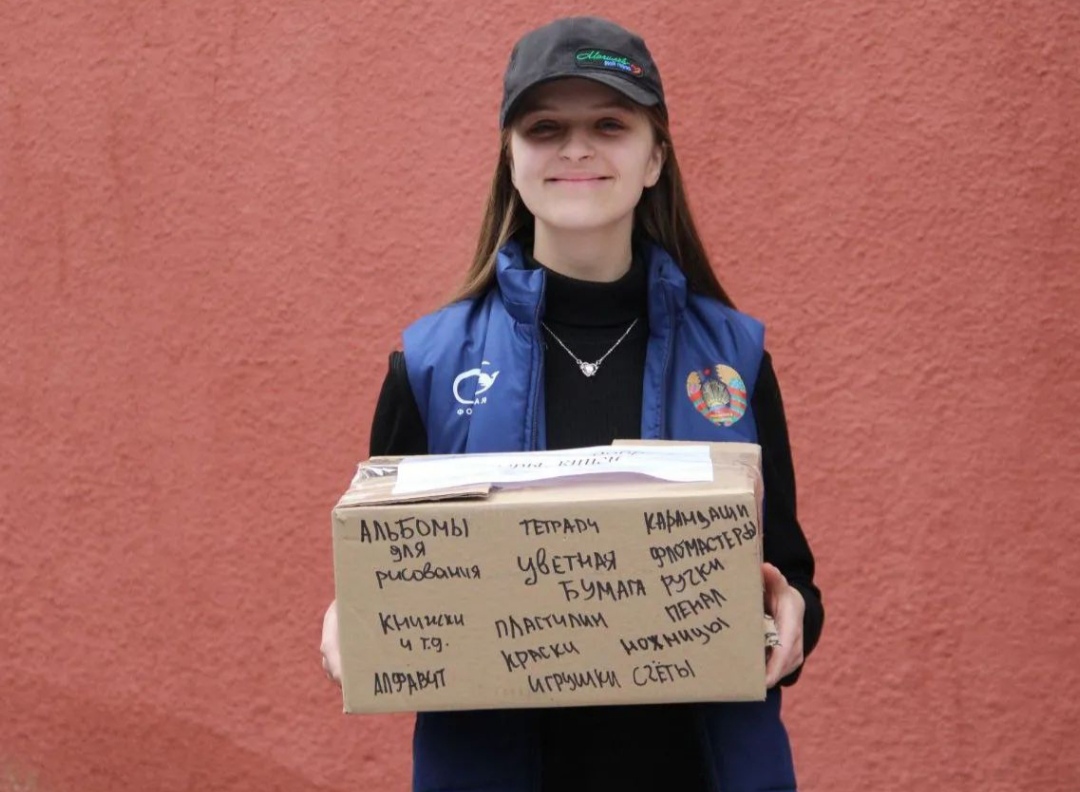 АЛЬБОМЫ
для
рисования
КНИЖКИ
и т.д.
АЛФАВИТ
ТЕТРАДИ
ЦВЕТНАЯ
БУМАГА
ПЛАСТИЛИН
КРАСКИ
ИГРУШКИ
КАРАНДАШИ
ФЛОМАСТЕРЫ
РУЧКИ
ПЕНАЛ
НОЖНИЦЫ
СЧЁТЫ